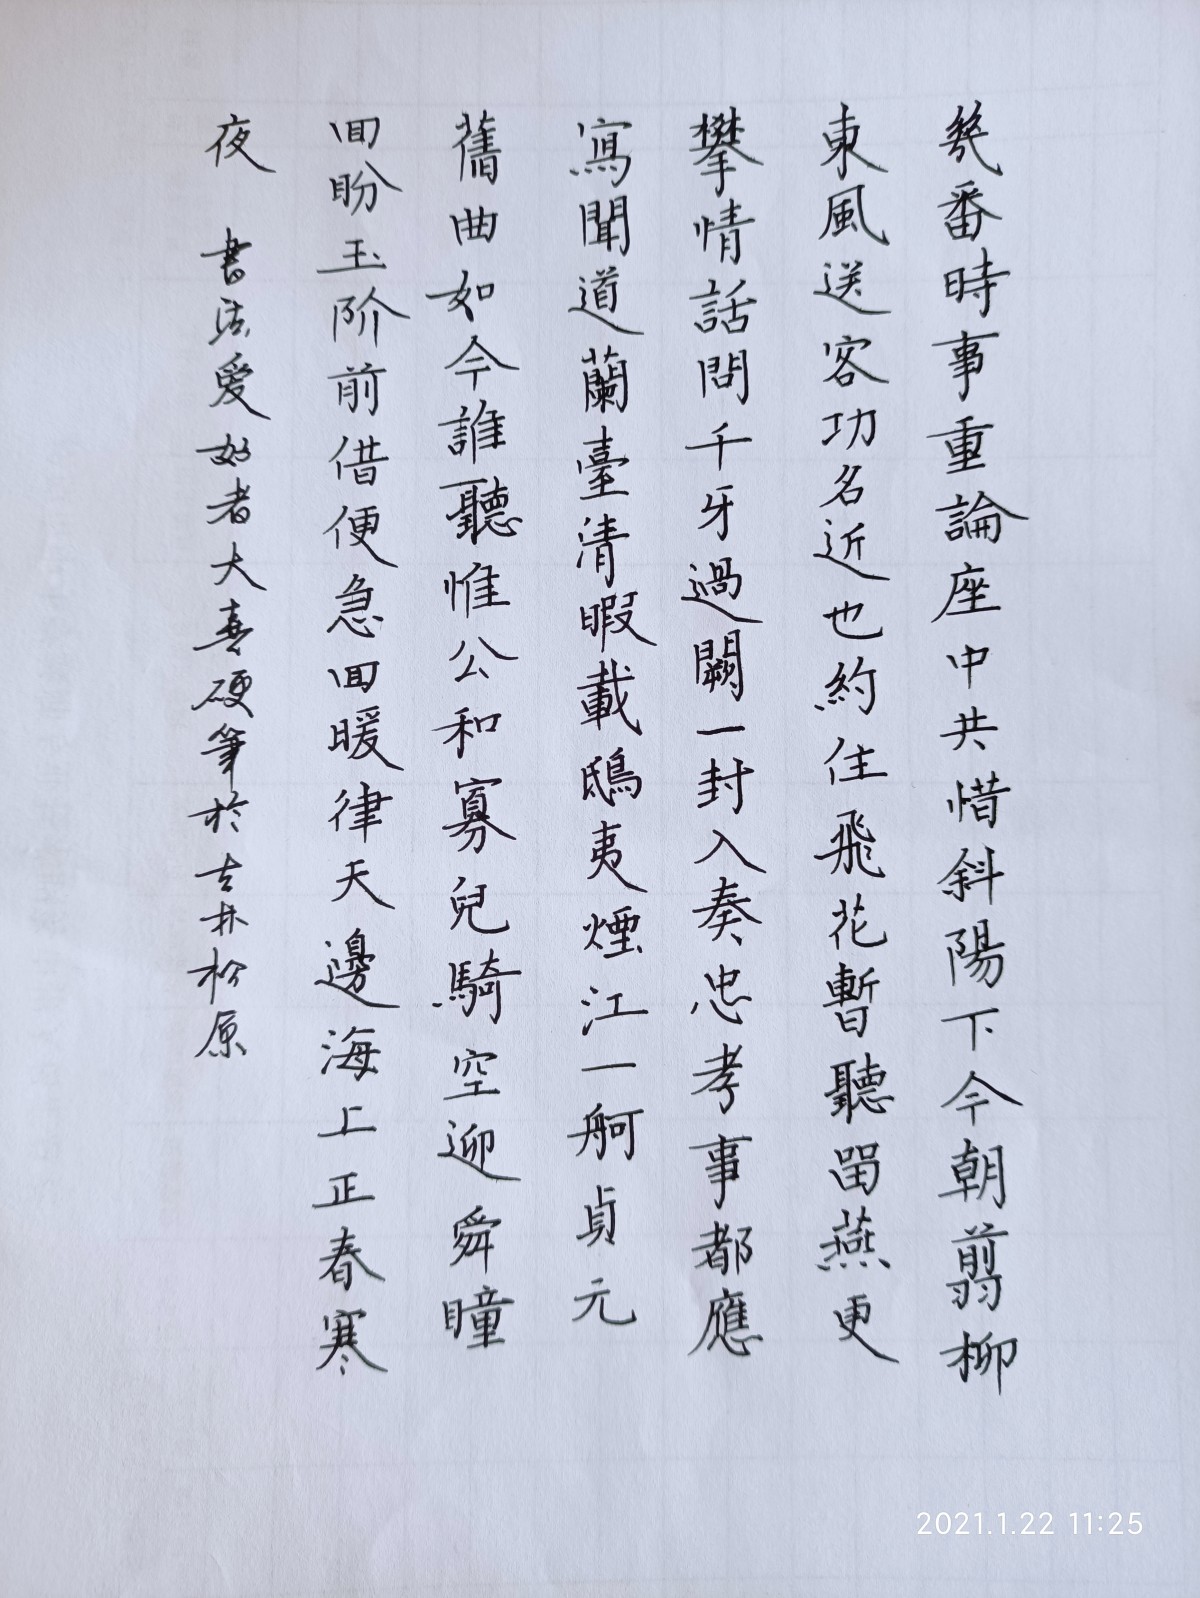 幾番時事重論座中共惜斜陽下今朝翦柳
東風送客功名近也約住飛花暫聽留燕更
攀情話問千牙過闕一封入奏忠孝事都應
寫聞道蘭臺清暇載鴟夷煙江一舸貞元
舊曲如今誰聽惟公和寡兒騎空迎舜瞳
回盼玉阶前借便急回暖律天邊海上正春寒
夜 書法爱好者大喜硬筆於吉林松原
2021.1.22 11:25